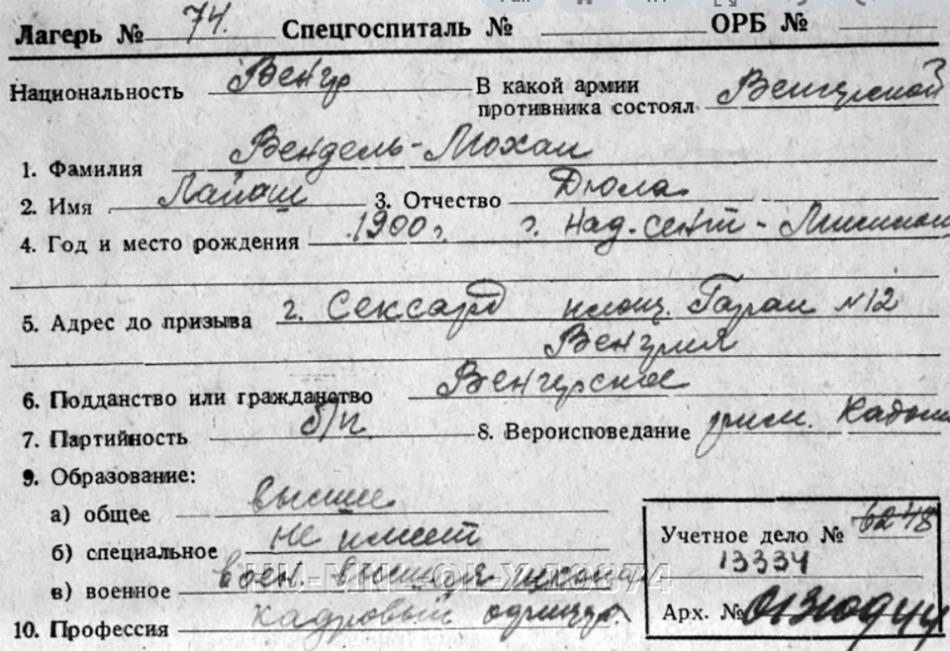 Лагерь № 74. Спецгоспиталь № ОРБ №
Национальность Венгр В какой армии
противника состоял Венгерской
1. Фамилия Вендель-Мохаи
2. Имя Лайош 3. Отчество Дюла
4. Год и место рождения 1900 г. г. Над.сент-
5. Адрес до призыва г. Сексард площ. Гараи №12
Венгрия
6. Подданство или гражданство Венгерское
7. Партийность б/п 8. Вероисповедание рим. Катол
9. Образование:
а) общее высшее
б) специальное не имеет
в) военное воен. высшая
10. Профессия кадровый офицер
Учетное дело № 6248
13334
Арх. №